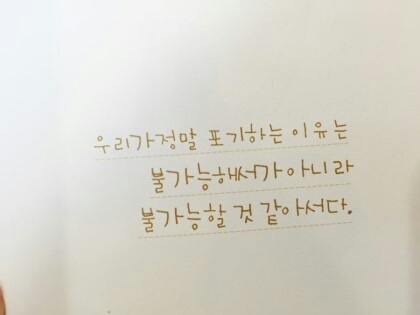 우리가정말 포기하는 이유는
불가능해서가 아니라
불가능할 것 같아서다.